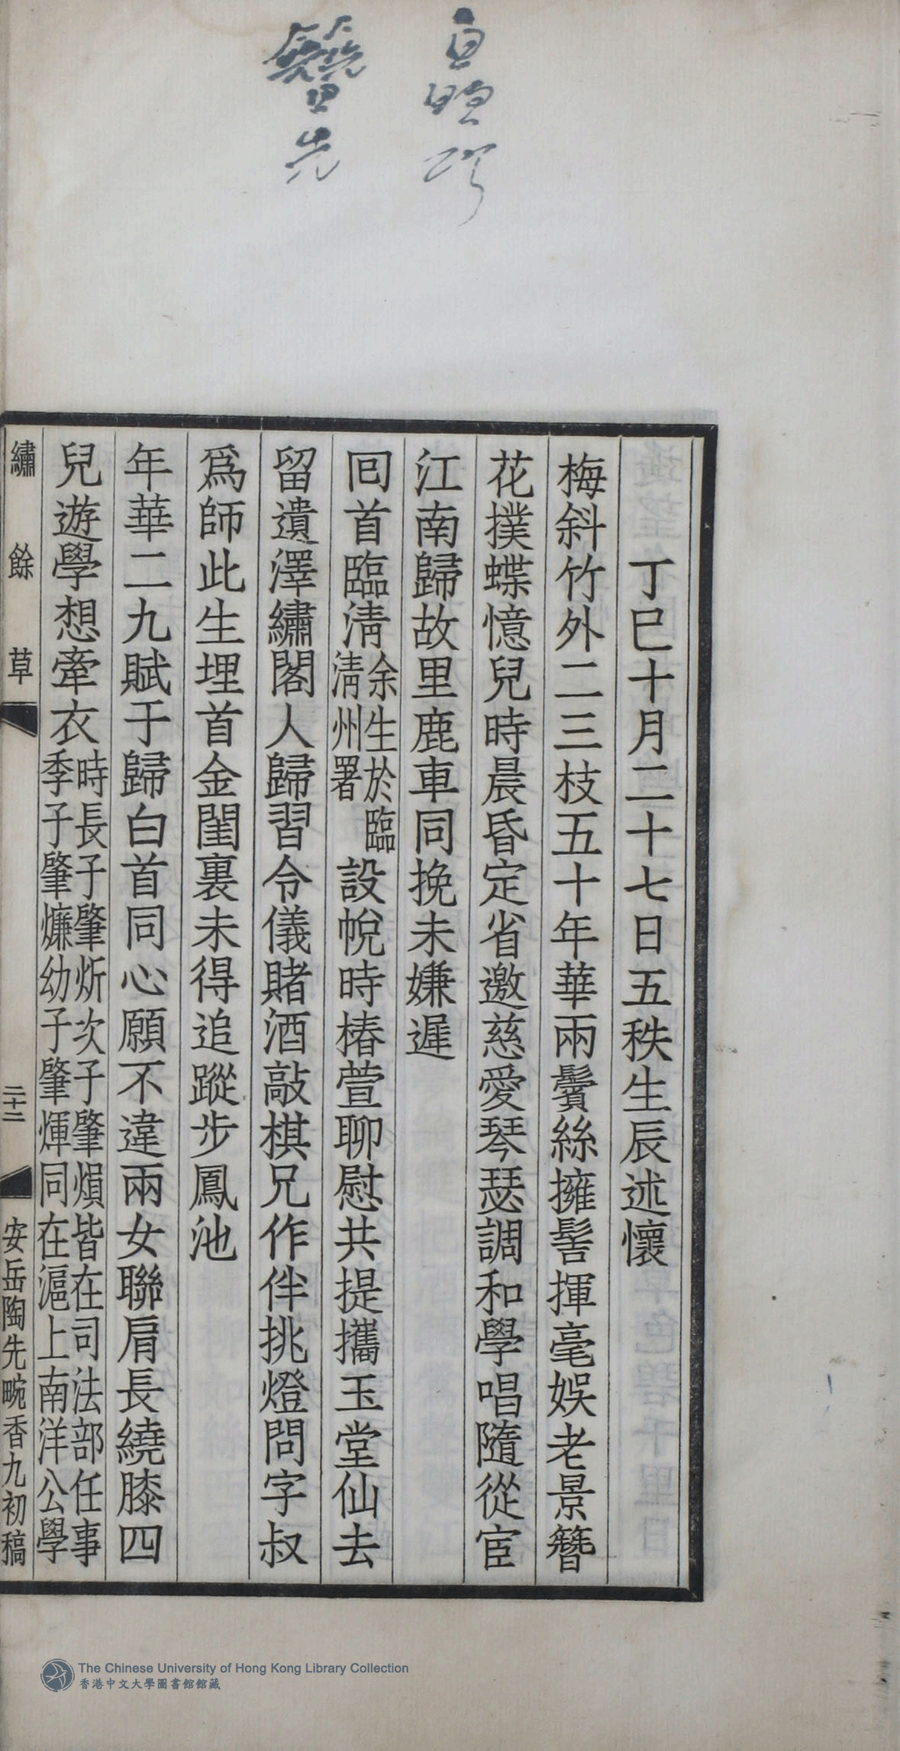 丁巳十月二十七日五秩生辰述懷
梅斜竹外二三枝五十年華兩鬢絲擁髻揮毫娛老景簪
花撲蝶憶兒時晨昏定省邀慈愛琴瑟調和學唱隨從宦
江南歸故里鹿車同挽未嫌遲
回首臨淸余生於臨淸州署設帨時椿萱聊慰共提攜玉堂仙去
留遺澤繡閣人歸習令儀賭酒敲棋兄作伴挑燈問字叔
爲師此生埋首金閨裏未得追蹤步鳳池
年華二九賦于歸白首同心願不違兩女聯肩長繞膝四
兒遊學想牽衣時長子肇炘次子肇熉皆在司法部任事季子肇㷰幼子肇煇同在滬上南洋公學
繡餘草
二十二
安岳陶先畹香九初稿
The Chinese University of Hong Kong Library Collection
香港中文大學圖書館館藏